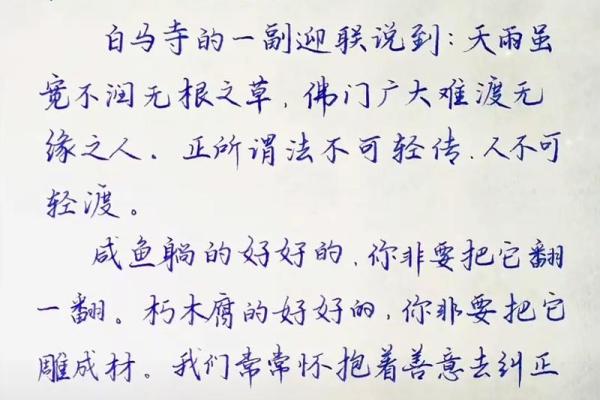 白马寺的一副迎联说到：天雨虽
宽不润无根之草，佛门广大难渡无
缘之人。正所谓法不可轻传、人不可
轻渡。
咸鱼躺的好好的，你非要把它翻
一翻。朽木腐的好好的，你非要把它
雕成材。我们常常怀抱着善意去纠正